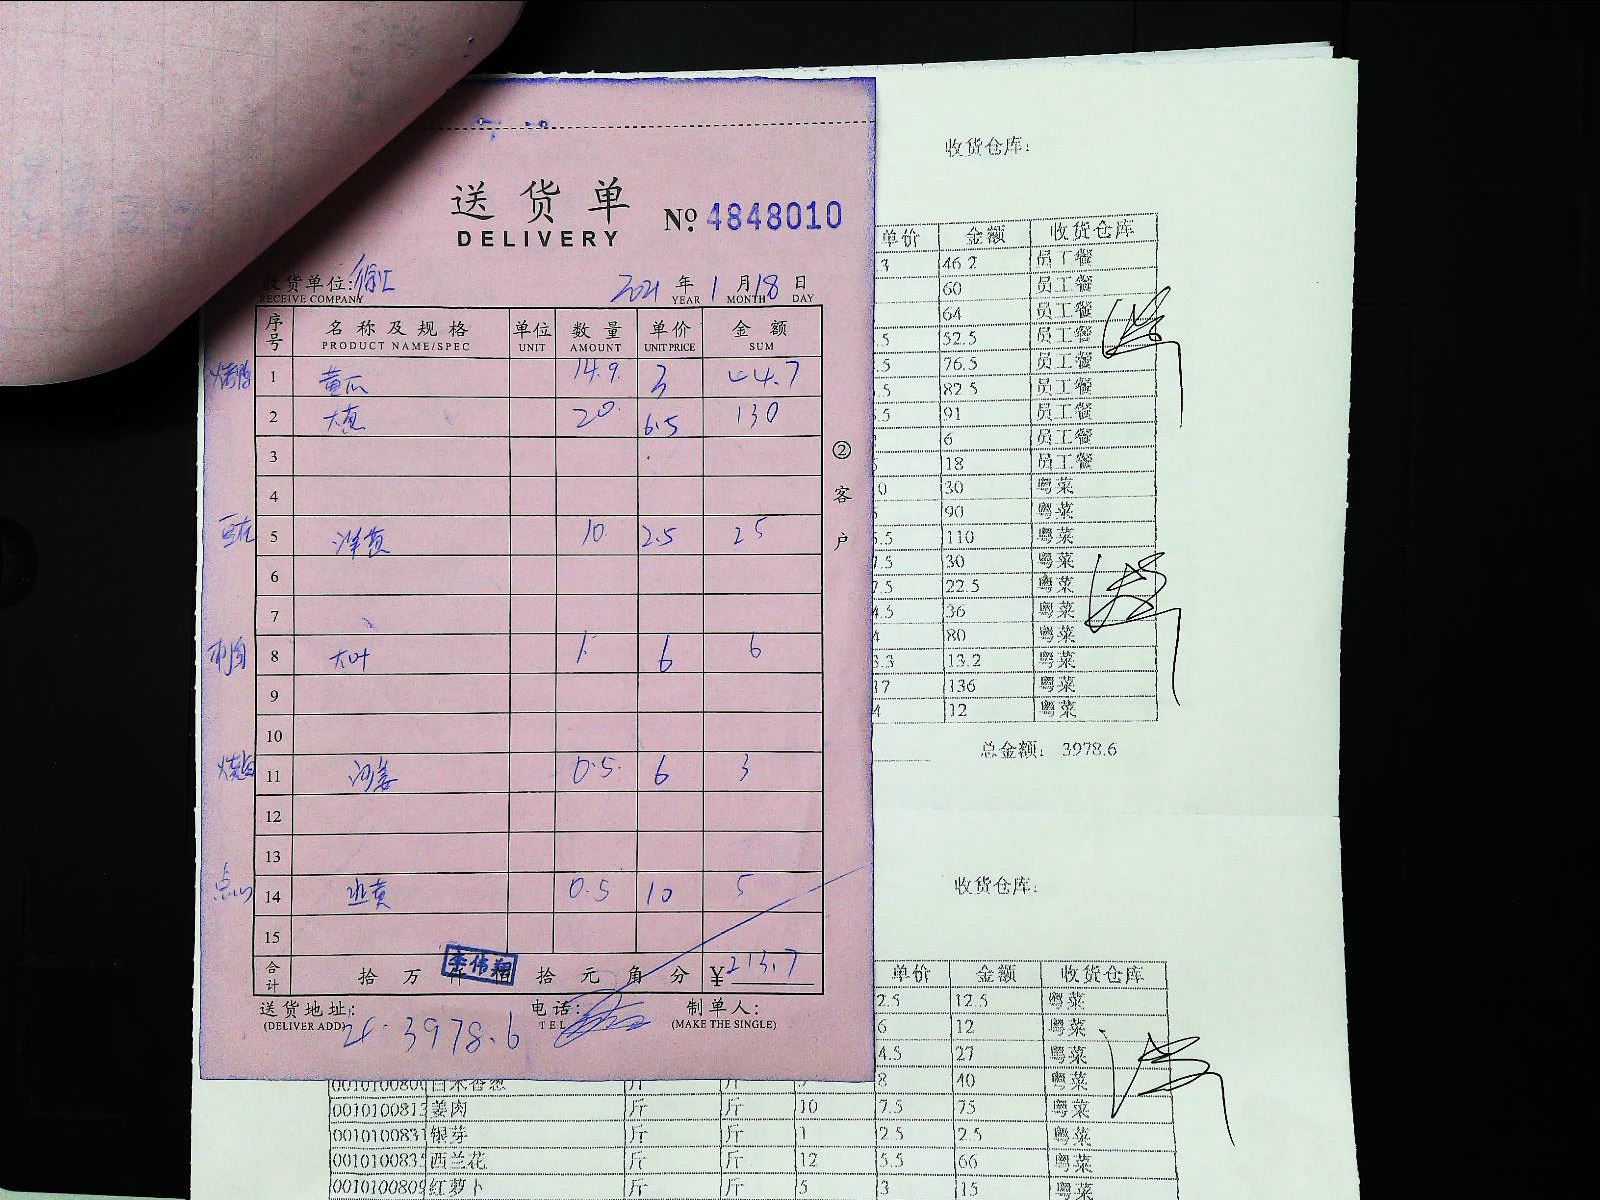 送货单
DELIVERY
№ 4848010
收货单位: 徐汇
RECEIVE COMPANY
2021 年 1 月 18 日
YEAR MONTH DAY
序号 名称及规格 单位 数量 单价 金额
PRODUCT NAME/SPEC UNIT AMOUNT UNIT PRICE SUM
1 黄瓜 14.9 3 44.7
2 大葱 20 6.5 130
3
4
5 洋葱 10 2.5 25
6
7
8 大叶 1 6 6
9
10
11 0.5 6 3
12
13
点心 14 韭黄 0.5 10 5
15
合计 拾 万 仟 佰 拾 元 角 分 ¥213.7
李伟翔
送货地址: 电话: 制单人:
(DELIVER ADD) TEL (MAKE THE SINGLE)
3978.6
②客户
收货仓库:
单价 金额 收货仓库
3 46.2 员工餐
60 员工餐
64 员工餐
.5 52.5 员工餐
.5 76.5 员工餐
.5 82.5 员工餐
.5 91 员工餐
6 员工餐
18 员工餐
0 30 粤菜
90 粤菜
.5 110 粤菜
7.5 30 粤菜
7.5 22.5 粤菜
4.5 36 粤菜
4 80 粤菜
3.3 13.2 粤菜
17 136 粤菜
4 12 粤菜
总金额: 3978.6
收货仓库:
单价 金额 收货仓库
2.5 12.5 粤菜
6 12 粤菜
4.5 27 粤菜
8 40 粤菜
0010100813 姜肉 斤 斤 10 7.5 75 粤菜
0010100831 银芽 斤 斤 1 2.5 2.5 粤菜
001010083 西兰花 斤 斤 12 5.5 66 粤菜
0010100809 红萝卜 斤 斤 5 3 15 粤菜